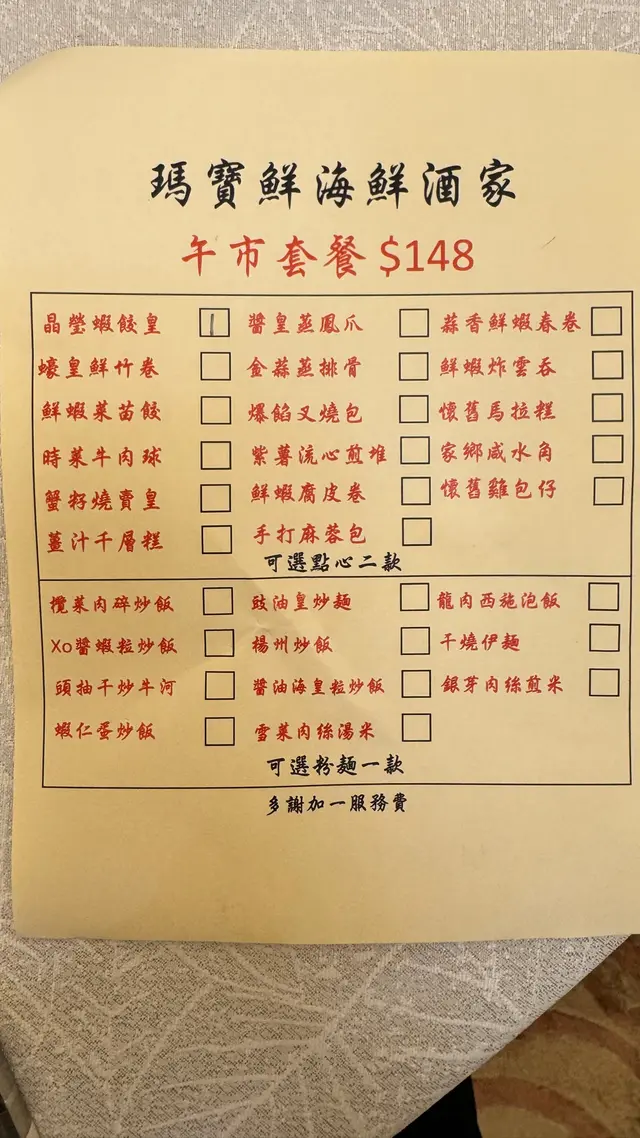 瑪寶鮮海鮮酒家
午市套餐 $148
晶瑩蝦餃皇 醬皇蒸鳳爪 蒜香鮮蝦春卷
蠔皇鮮竹卷 金蒜蒸排骨 鮮蝦炸雲吞
鮮蝦菜苗餃 爆餡叉燒包 懷舊馬拉糕
時菜牛肉球 紫薯流心煎堆 家鄉咸水角
蟹籽燒賣皇 鮮蝦腐皮卷 懷舊雞包仔
薑汁千層糕 手打麻蓉包
可選點心二款
欖菜肉碎炒飯 豉油皇炒麵 龍肉西施泡飯
Xo醬蝦粒炒飯 楊州炒飯 干燒伊麵
頭抽干炒牛河 醬油海皇粒炒飯 銀芽肉絲煎米
蝦仁蛋炒飯 雪菜肉絲湯米
可選粉麵一款
多謝加一服務費